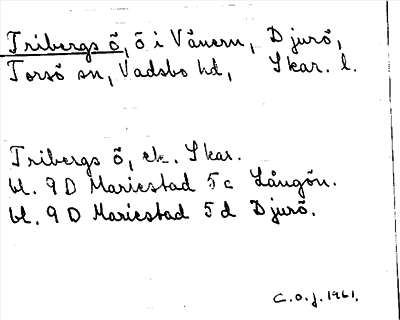 Tribergs ö, ö i Vänern, Djurö,
Torsö sn, Vadsbo hd, Skar. l.
Tribergs ö, ek. Skar.
bl. 9 D Mariestad 5 c Långön.
bl. 9 D Mariestad 5 d Djurö.
C.O.J. 1961.